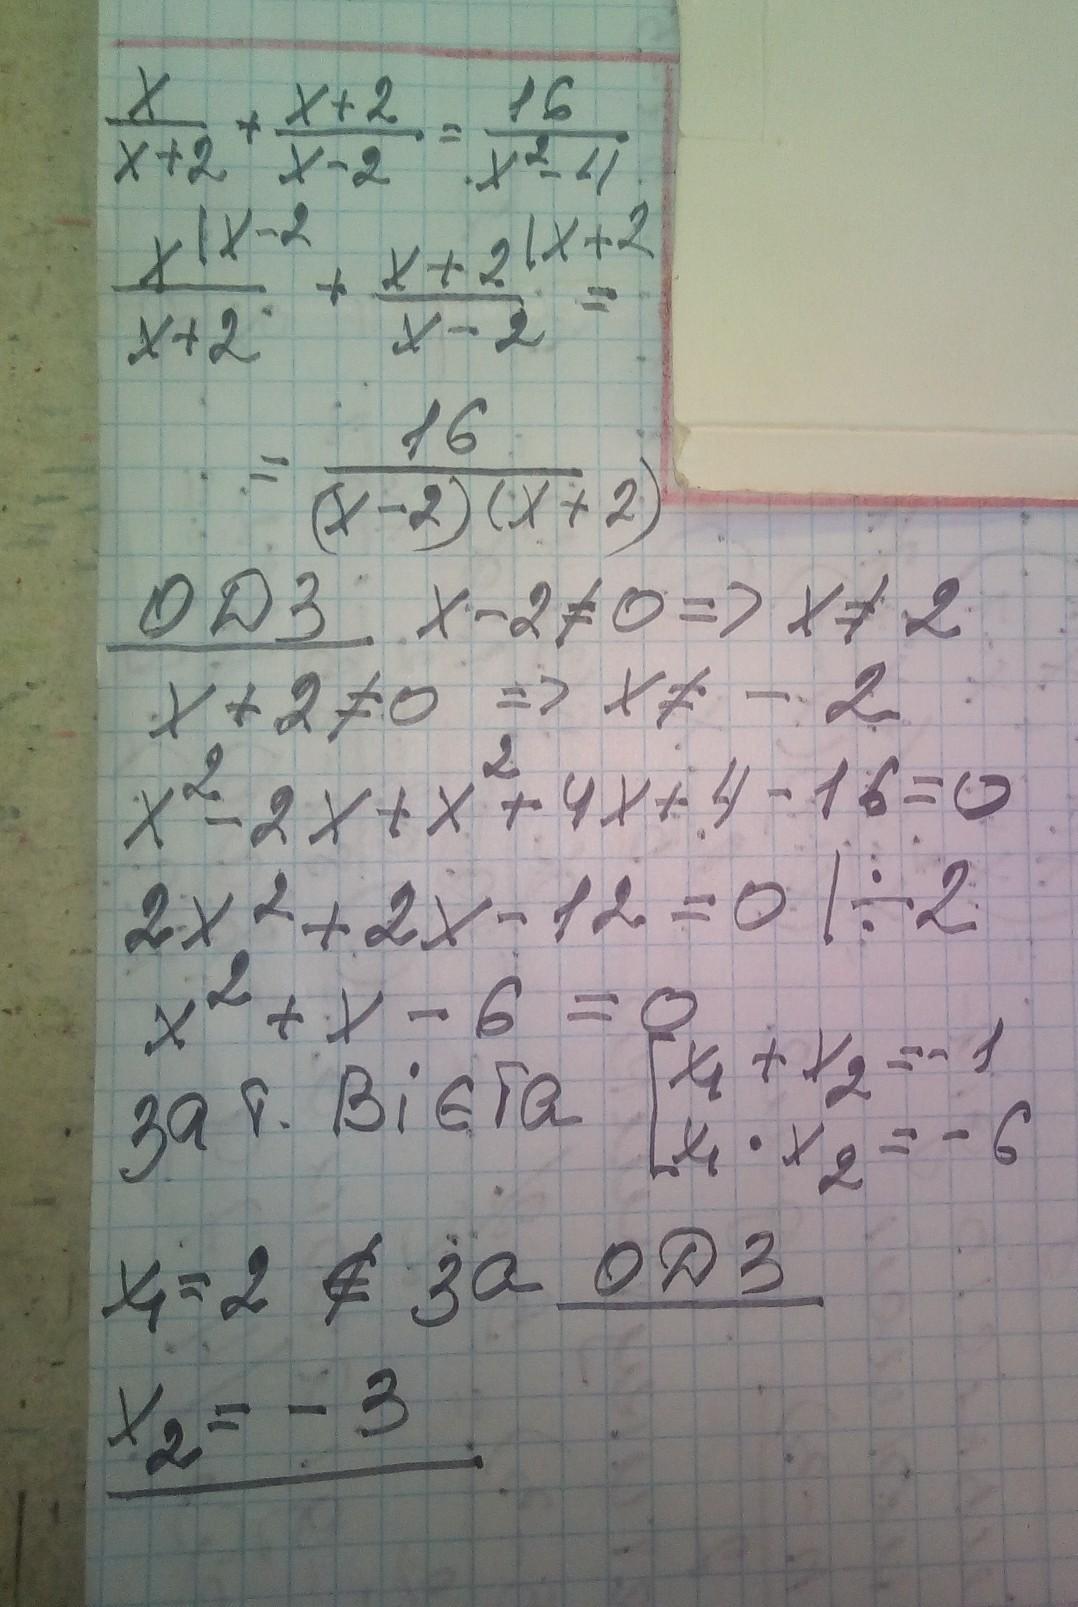 x/(x+2) + (x+2)/(x-2) = 16/(x²-4)
x|x-2/(x+2) + x+2|x+2/(x-2) =
= 16/((x-2)(x+2))
ОДЗ x-2≠0 => x≠2
x+2≠0 => x≠ -2
x²-2x+x²+4x+4-16=0
2x²+2x-12=0 |÷2
x²+x-6=0
за т. Вієта [x₁+x₂=-1
x₁·x₂=-6
x₁=2 ∉ за ОДЗ
x₂=-3